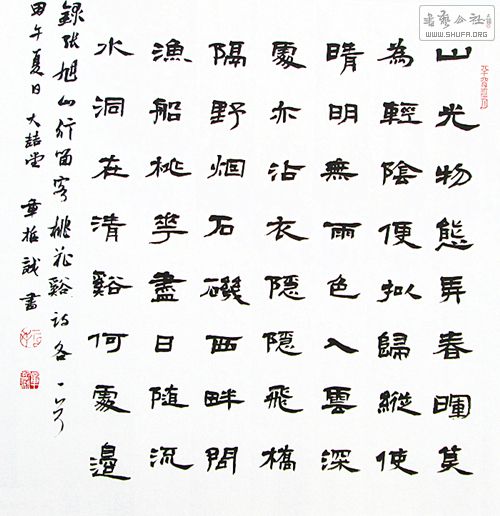 書藝公社
WWW.SHUFA.ORG
山光物態弄春暉莫
為輕陰便拟歸縱使
晴明無雨色入雲深
處亦沾衣隱隱飛橋
隔野烟石磯西畔問
漁船桃華盡日隨流
水洞在清谿何處邊
錄張旭山行留客桃花谿詩各一首
甲午夏日 大喆堂 章哲誠書